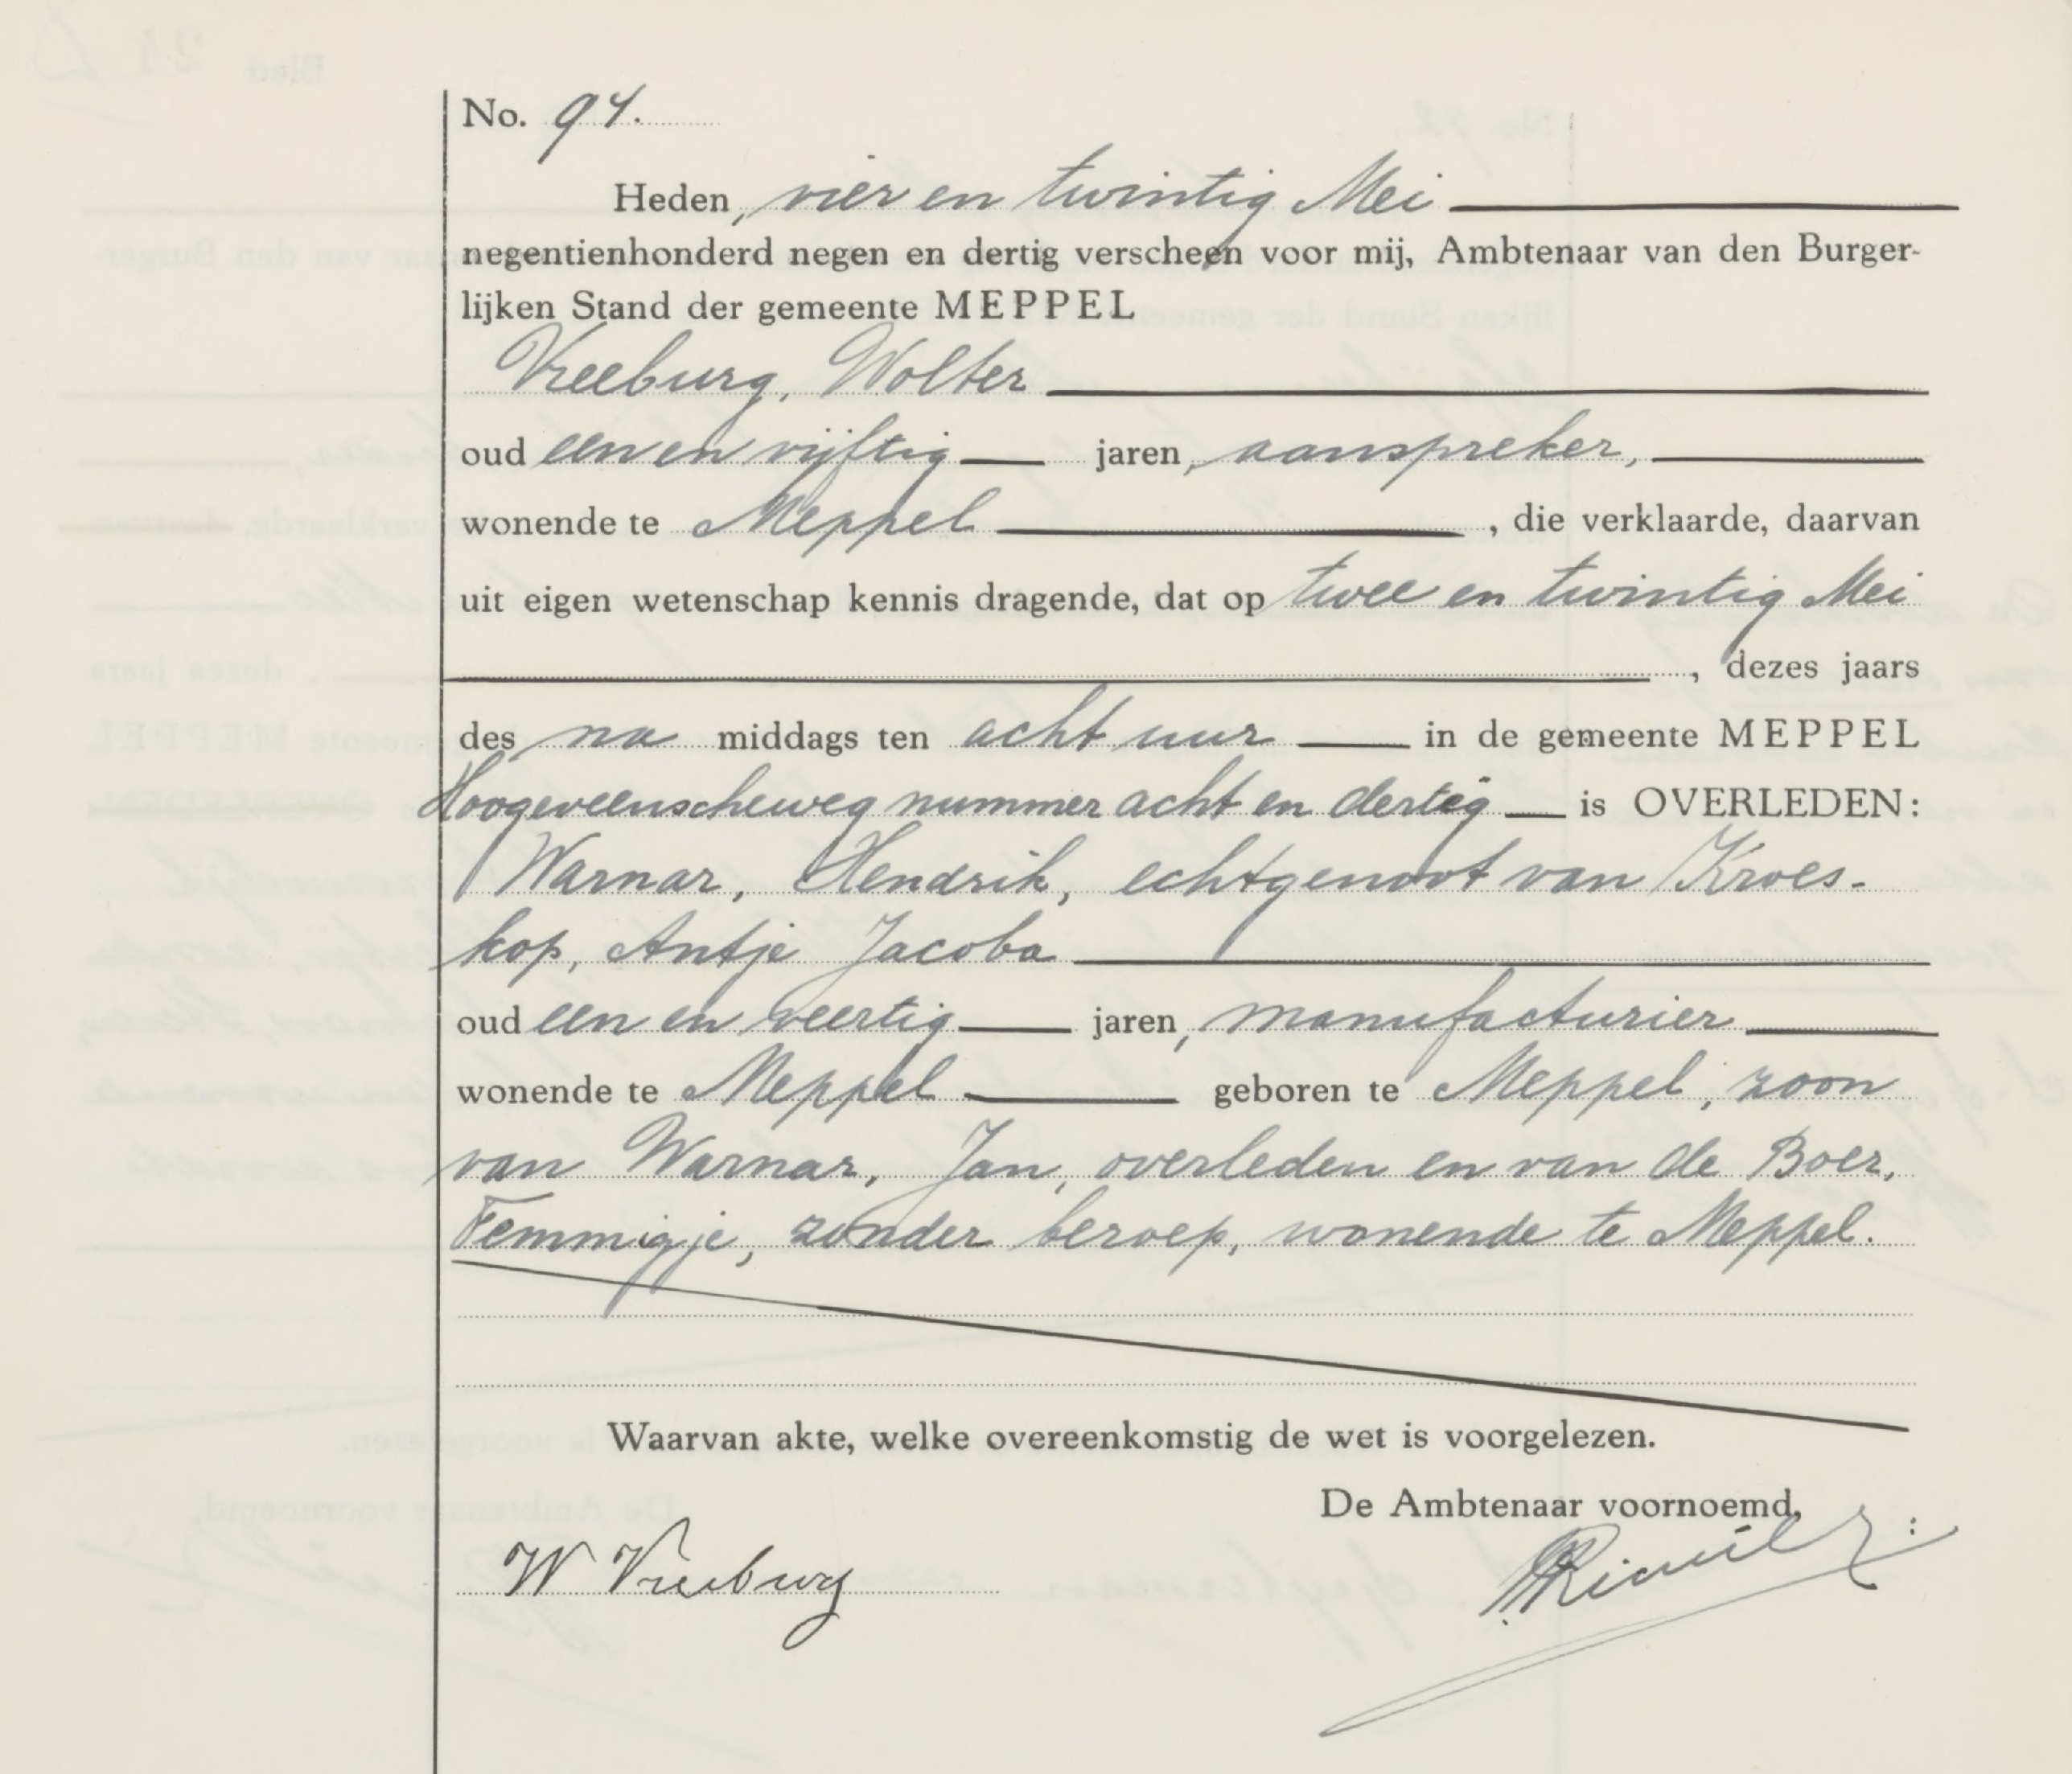 No. 94.
Heden, vier en twintig Mei
negentienhonderd negen en dertig verscheen voor mij, Ambtenaar van den Burger-
lijken Stand der gemeente MEPPEL
Vreeburg, Wolter
oud een en vijftig jaren, aanspreker,
wonende te Meppel, die verklaarde, daarvan
uit eigen wetenschap kennis dragende, dat op twee en twintig Mei
, dezes jaars
des na middags ten acht uur in de gemeente MEPPEL
Hoogeveenscheweg nummer acht en dertig is OVERLEDEN:
Warnar, Hendrik, echtgenoot van Kroes-
kop, Antje Jacoba
oud een en veertig jaren, manufacturier
wonende te Meppel geboren te Meppel, zoon
van Warnar, Jan, overleden en van de Boer,
Femmigje, zonder beroep, wonende te Meppel.
Waarvan akte, welke overeenkomstig de wet is voorgelezen.
De Ambtenaar voornoemd,
W Vreeburg